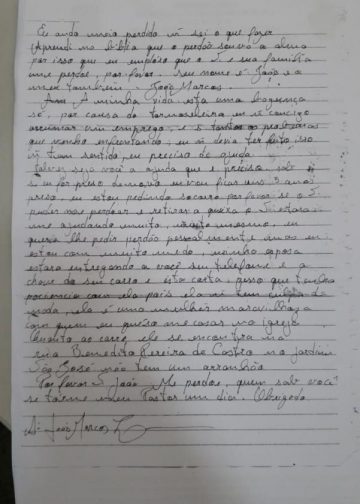 Eu ando meio perdido ñ sei o que fazer
Aprendi na bíblia que o perdão salva a alma
por isso que eu imploro que o S. e sua família
me perdoe, por favor. Seu nome é João e o
meu também. João Marcos.
A minha vida está uma bagunça
só, por causa da tornozeleira eu ñ consigo
arrumar um emprego, e os problemas
que venho enfrentando, eu ñ devia ter feito isso
ñ tem sentido, eu preciso de ajuda
talvez seja você a ajuda que eu preciso, sabe
se eu for preso denovo eu vou ficar uns 3 anos
preso, eu estou pedindo socorro por favor se o S.
puder me perdoar e retirar a queixa o S. estará
me ajudando muito, muito mesmo, eu
queria lhe pedir perdão pessoalmente mas eu
estou com muito medo, minha esposa
estará entregando a você seu telefone e a
chave do seu carro e esta carta, peço que tenha
paciencia com ela pois ela ñ tem culpa de
nada, ela é uma mulher maravilhosa
com quem eu quero me casar na igreja
Quanto ao carro, ele se encontra na
rua Benedito Pereira de Castro no jardim
São José não tem um arranhão
Por favor S. João. Me perdoe, quem sabe você
se torne meu Pastor um dia. Obrigado.
Ass: João Marcos